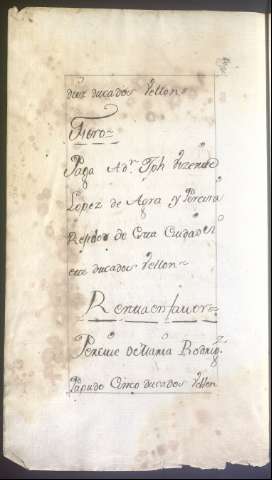 diez ducados Vellon
Foro
Paga a Dn. Jph Vizente
Lopez de Agra y Pereira
Rejidor de esta Ciudad
diez ducados Vellon
Renta en favor
Perciue de Maria Rodrig.z
Papudo Cinco ducados Vellon